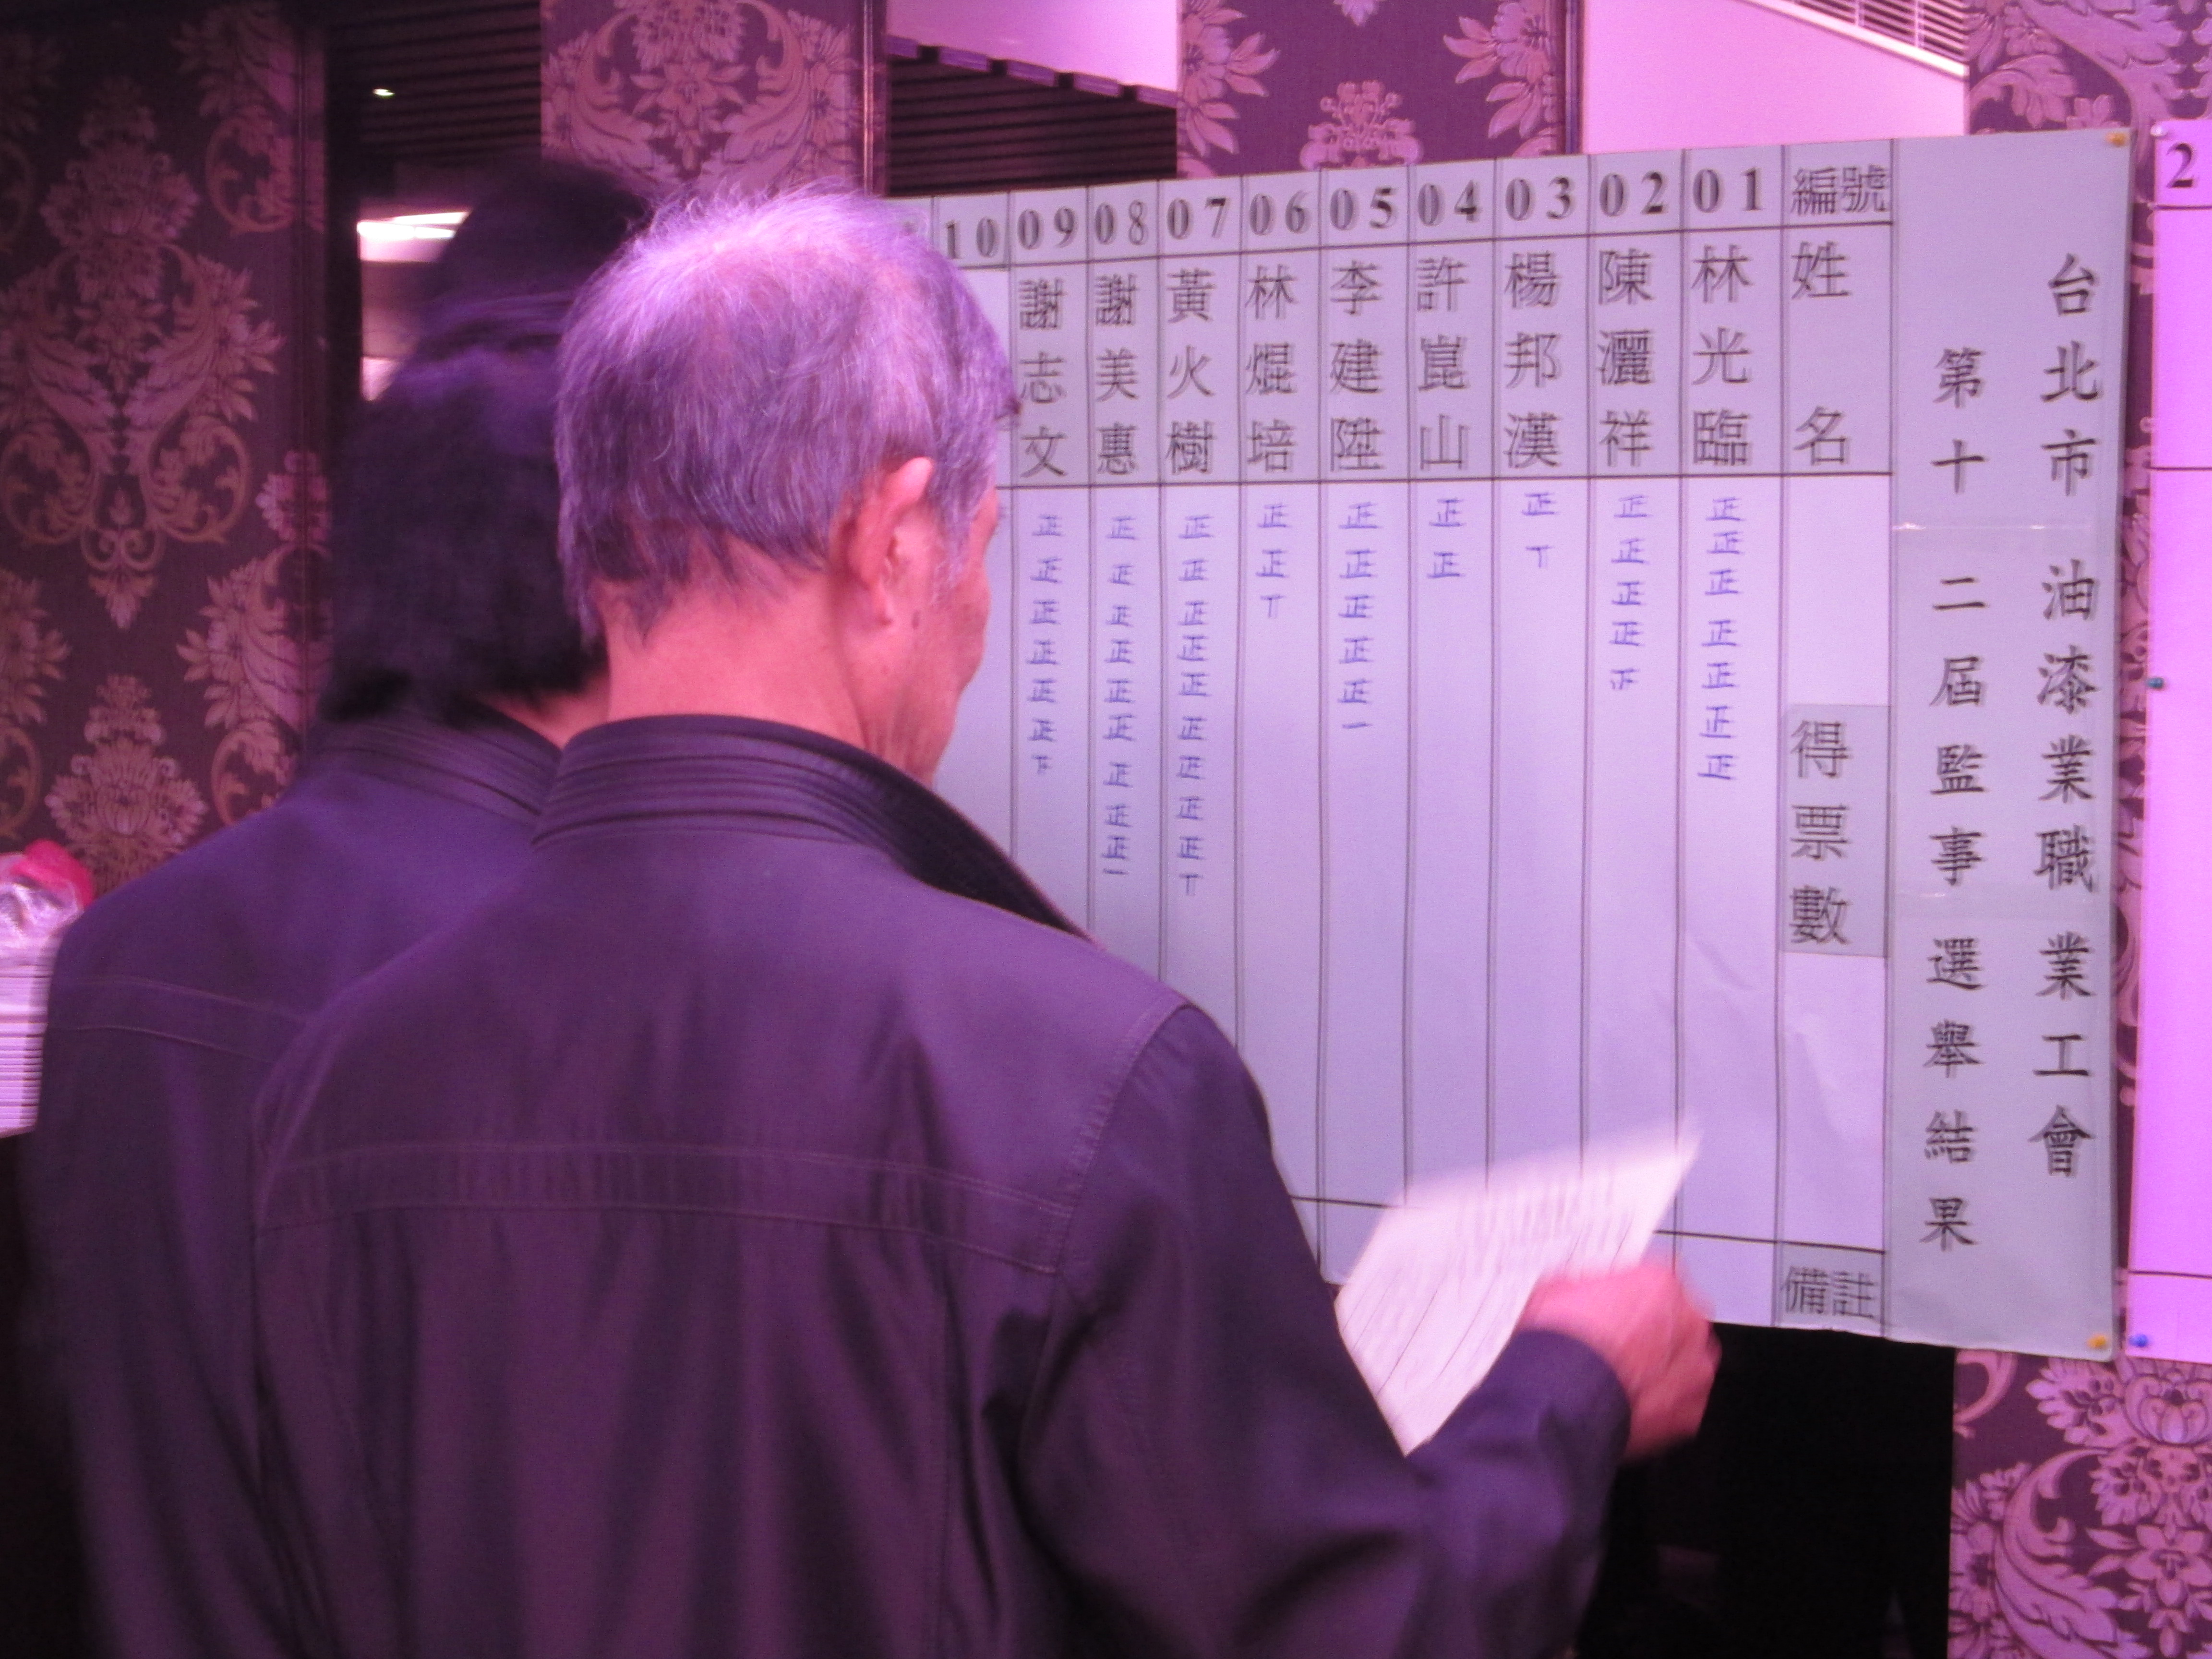 2
台北市油漆業職業工會
第十二屆監事選舉結果
編號 姓名 得票數 備註
01 林光臨 正正正正正正正
02 陳灑祥 正正正正
03 楊邦漢 正丅
04 許崑山 正正
05 李建陞 正正正正正一
06 林焜培 正正丅
07 黃火樹 正正正正正正正正正丅
08 謝美惠 正正正正正正正正正一
09 謝志文 正正正正正正下
10